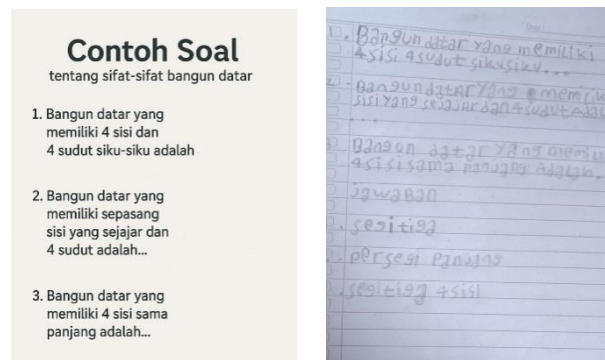 Contoh Soal
tentang sifat-sifat bangun datar
1. Bangun datar yang
memiliki 4 sisi dan
4 sudut siku-siku adalah
2. Bangun datar yang
memiliki sepasang
sisi yang sejajar dan
4 sudut adalah...
3. Bangun datar yang
memiliki 4 sisi sama
panjang adalah...
1. Bangun datar yang memiliki
4 sisi 4 sudut sikusiku...
2. Bangun datar yang memilik
sisi yang sejajar dan 4 sudut Adal
...
3) Bangun datar yang memili
4 sisi sama panjang Adalah.
jawaban
segitiga
persegi panjang
segitiga 4 sisi